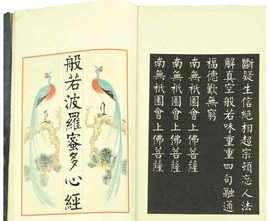 斷疑生信絕相超宗頓忘人法
解真空般若味重重四句融通
福德歎無窮
南無祇園會上佛菩薩
南無祇園會上佛菩薩
南無祇園會上佛菩薩
般若波羅蜜多心經